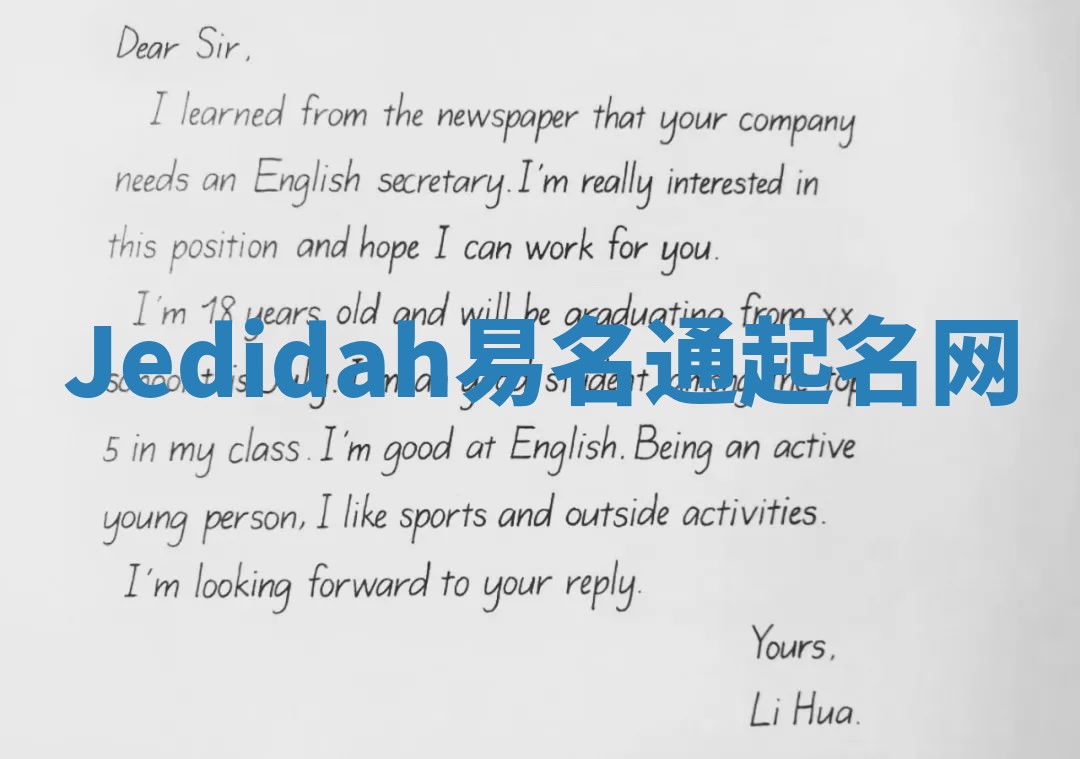 Dear Sir,
I learned from the newspaper that your company
needs an English secretary. I'm really interested in
this position and hope I can work for you.
I'm 18 years old and will be graduating from xx
Jedidah易名通起名网
school this July. I'm a good student among the top
5 in my class. I'm good at English. Being an active
young person, I like sports and outside activities.
I'm looking forward to your reply.
Yours,
Li Hua.